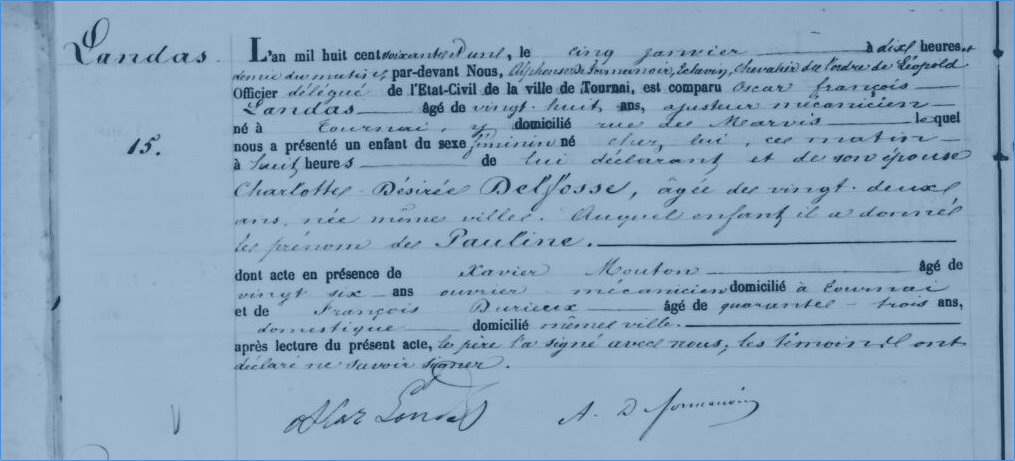 Landas.
15.
L'an mil huit cent soixante et un, le cinq janvier à dix heures et
demie du matin, par-devant Nous, Alphonse De Formanoir, Echevin, Chevalier de l'ordre de Léopold
Officier délégué de l'Etat-Civil de la ville de Tournai, est comparu Oscar françois
Landas âgé de vingt-huit, ans, ajusteur mécanicien
né à Tournai, y domicilié rue des Marvis lequel
nous a présenté un enfant du sexe féminin né chez lui, ce matin
à huit heures de lui déclarant et de son épouse
Charlotte Désirée Delfosse, âgée de vingt-deux
ans, née même ville. Auquel enfant il a donné
le prénom de Pauline.
dont acte en présence de Xavier Mouton âgé de
vingt six ans ouvrier mécanicien domicilié à Tournai
et de François Durieux âgé de quarante-trois ans,
domestique domicilié même ville.
après lecture du présent acte, le père l'a signé avec nous, les témoins ont
déclaré ne savoir signer.
Landas A. De formanoir